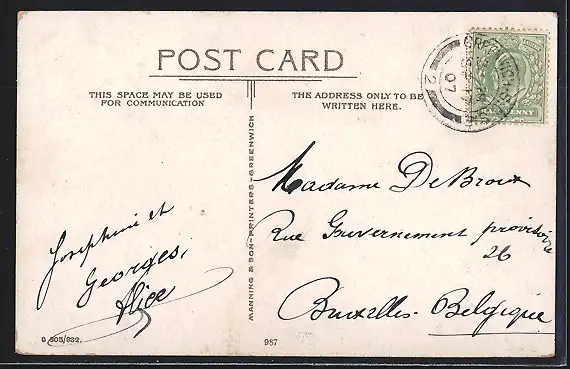 POST CARD
THIS SPACE MAY BE USED
FOR COMMUNICATION
THE ADDRESS ONLY TO BE
WRITTEN HERE.
2
07
PENNY
MANNING & SON-PRINTERS-GREENWICH
Madame De Broux
Rue Gouvernement provisoire
26
Bruxelles - Belgique
Josephine et
Georges,
Alice
D 305/932.
987